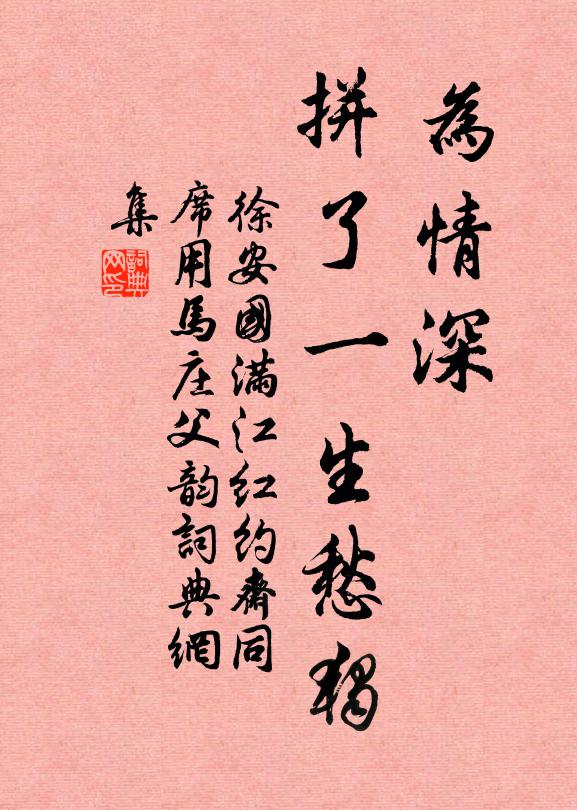 為情深
拼了一生愁獨
徐安國满江红约齋同
席用馬庄父韵詞典網
集
詞典
网印